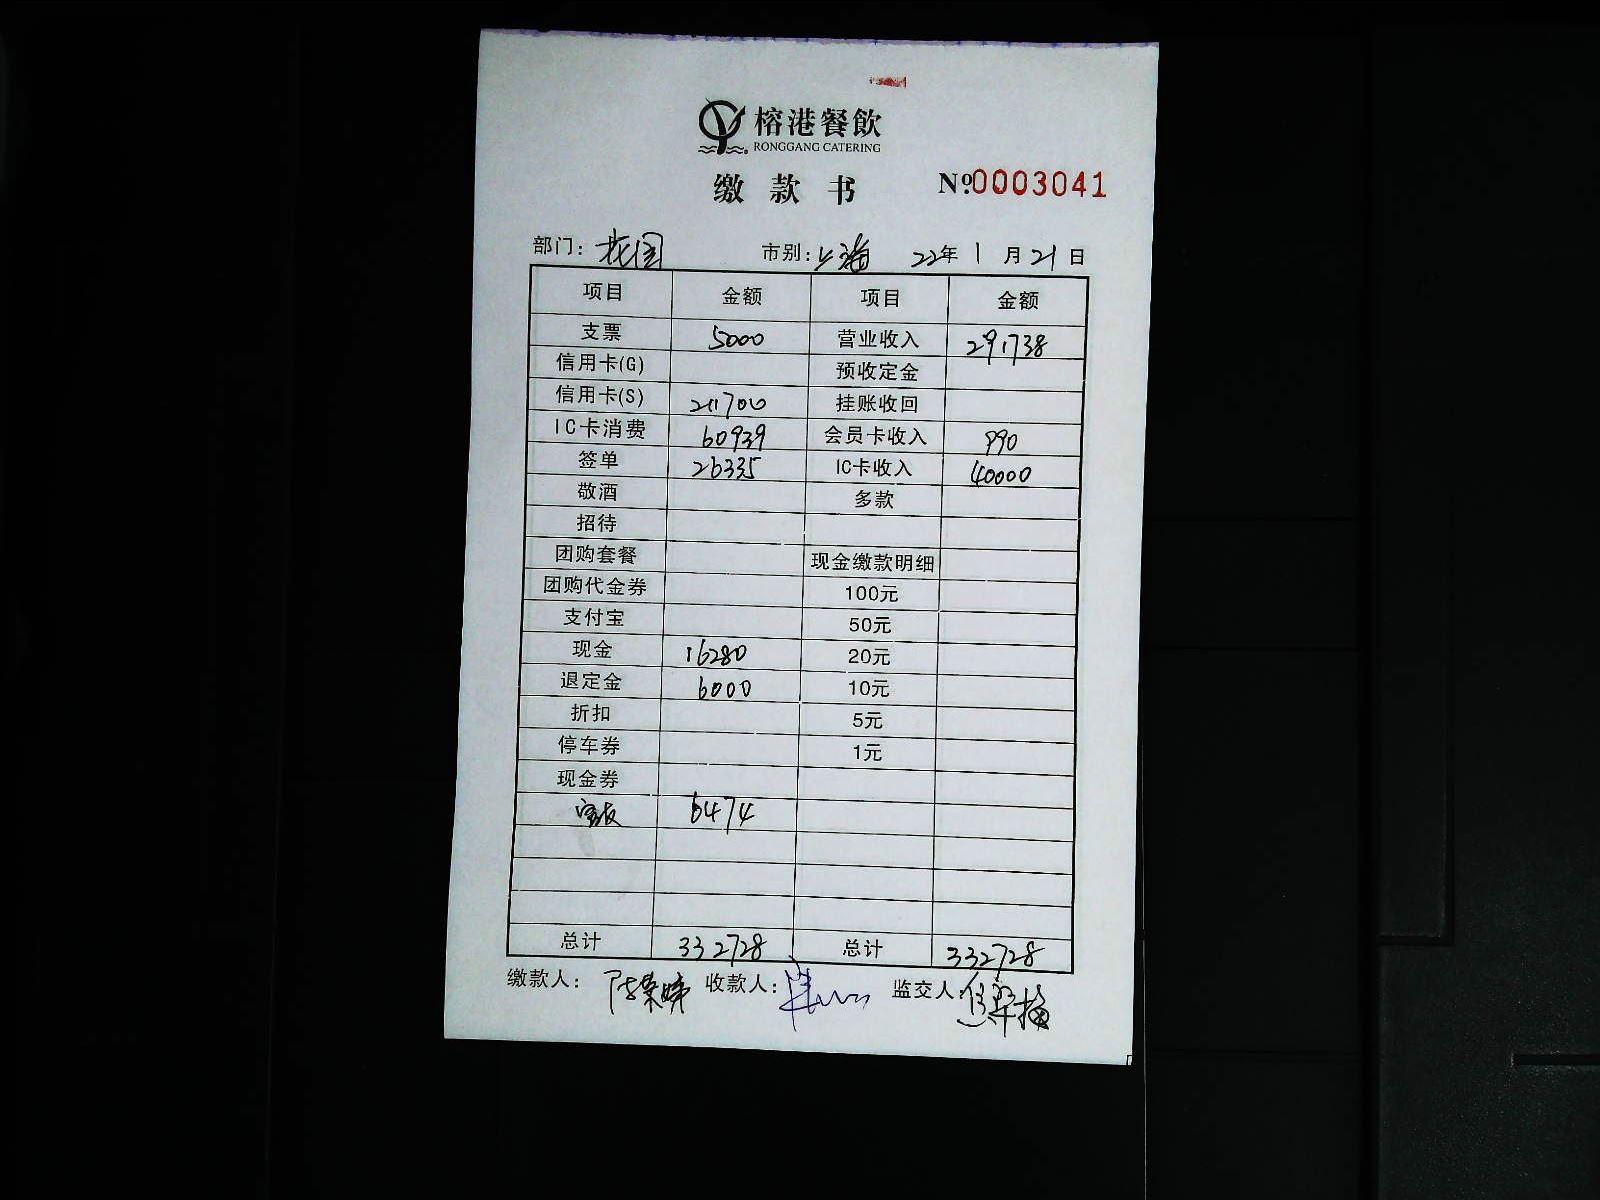 榕港餐飲
RONGGANG CATERING
缴款书 №0003041
部门：花园 市别：上海 22年1月21日
项目 金额 项目 金额
支票 5000 营业收入 291738
信用卡(G) 预收定金
信用卡(S) 211700 挂账收回
IC卡消费 60939 会员卡收入 990
签单 26335 IC卡收入 40000
敬酒 多款
招待
团购套餐 现金缴款明细
团购代金券 100元
支付宝 50元
现金 16280 20元
退定金 6000 10元
折扣 5元
停车券 1元
现金券
6474
总计 332728 总计 332728
缴款人： 收款人： 监交人：